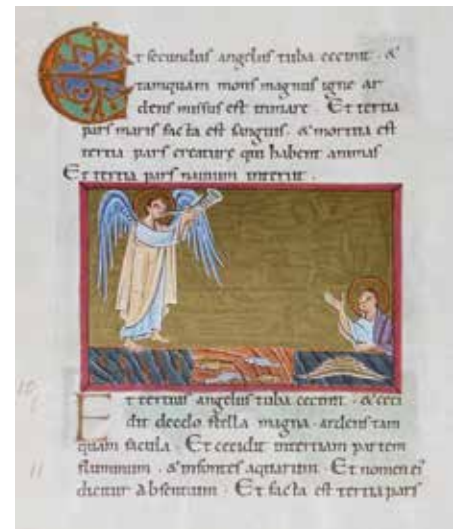 Et secundus angelus tuba cecinit . &
tamquam mons magnus igne ar
dens missus est inmare . Et tertia
pars maris facta est sanguis . & mortua est
tertia pars creature qui habent animas
Et tertia pars nauium interiit .
Et tertius angelus tuba cecinit . & ceci
dit decelo stella magna . ardens tam
quam facula . Et cecidit intertiam partem
fluminum . & infontes aquarum . Et nomen ei'
dicitur Absentium . Et facta est tertia pars
11